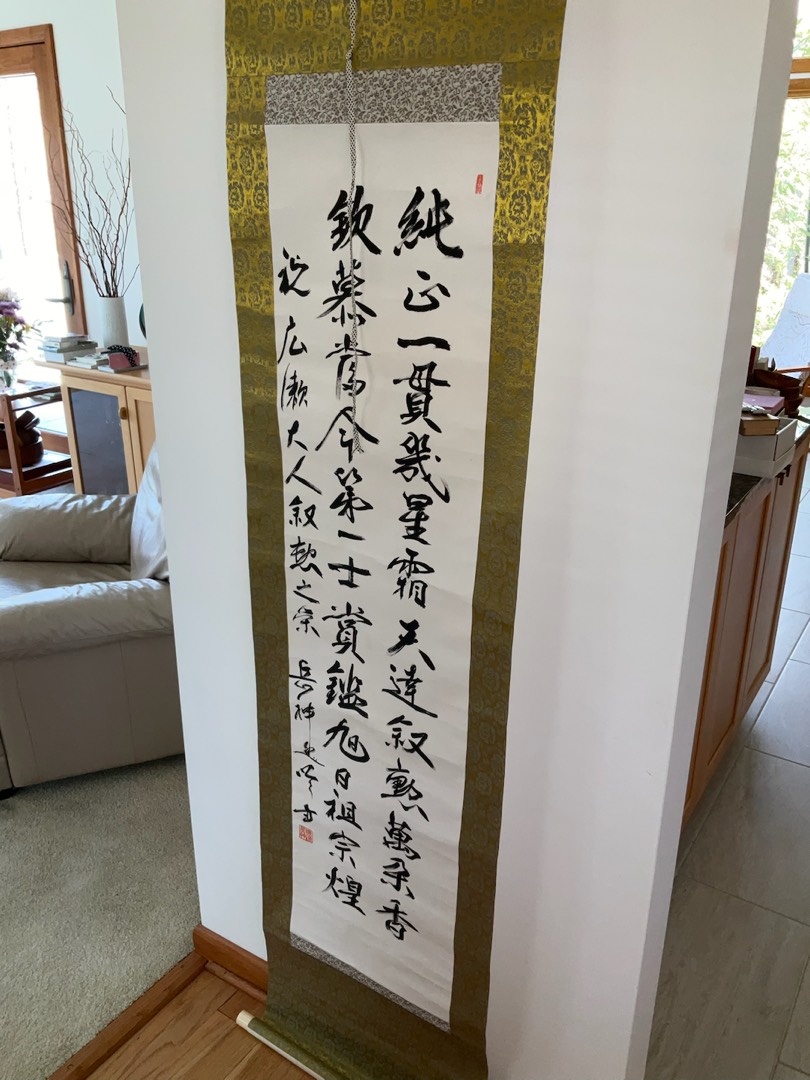 純正一貫幾星霜天達叙勲萬朶香
欽慕當今第一士賞鑑旭日祖宗煌
祝広瀬大人叙勲之栄 岳神